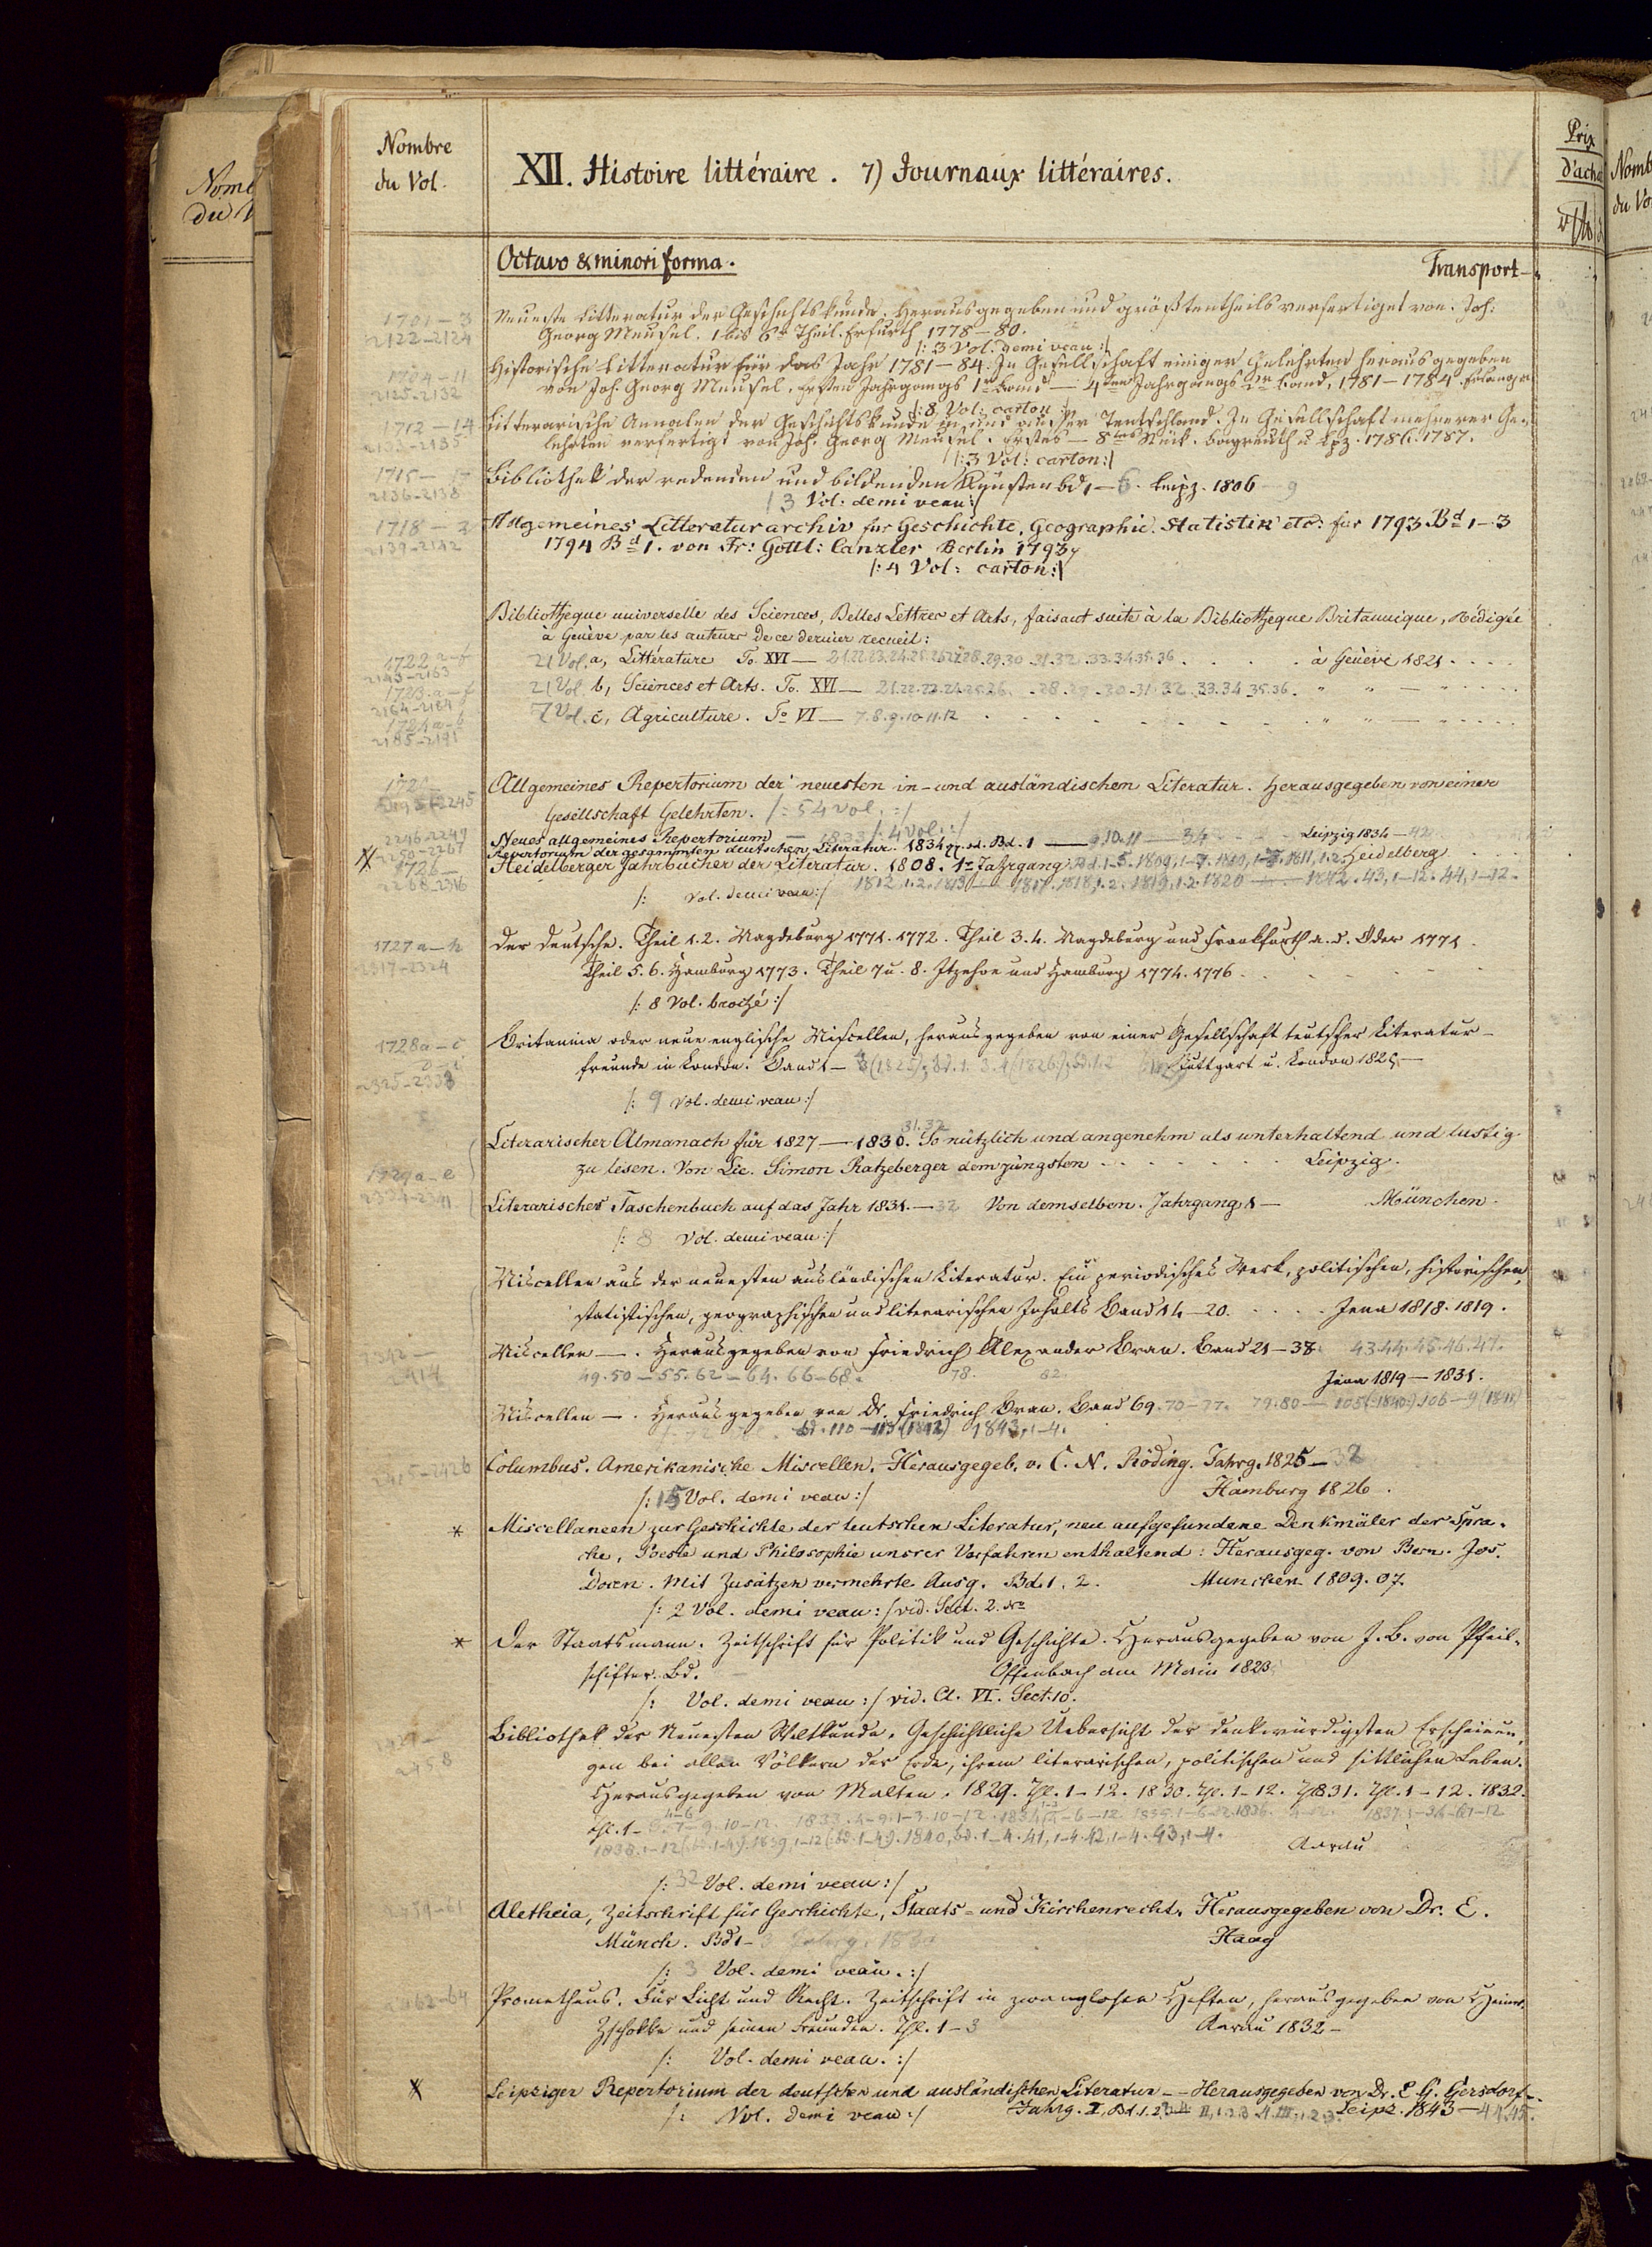 Nombre
du Vol.
XII. Histoire littéraire. 7) Journaux littéraires.
Prix
Octavo & minori forma.
Transport
1701 — 3
2122–2124
Neueste Litteratur der Geschichtskunde. Herausgegeben und größtentheils verfertiget von Joh:
Georg Meusel. 1 bis 6r Theil. Erfurth 1778—80.
/: 3 Vol. demi veau :/
1704 — 11
2125–2132
Historische Litteratur für das Jahr 1781—84. In Gesellschaft einiger Gelehrten herausgegeben
von Joh. Georg Meusel. Ersten Jahrgangs 1r Band — 4ten Jahrgangs 2r Band, 1781—1784. Erlangen
/: 8 Vol: carton :/
1712 — 14
2133–2135
Litterarische Annalen der Geschichtskunde in und ausser Teutschland. In Gesellschaft mehrerer Ge-
lehrten verfertigt von Joh. Georg Meusel. Erstes — 8tes Stück. Bayreuth u Lpz. 1786. 1787.
/: 3 Vol: carton :/
1715 —
2136–2138
Bibliothek der redenden und bildenden Künsten bd 1— 6. Leipz. 1806 9
/ 3 Vol: demi veau :/
1718 —
2139–2142
Allgemeines Litteraturarchiv für Geschichte, Geographie. Statistik etc: für 1793 Bd 1—3
1794 Bd 1. von Fr: Gottl: Canzler Berlin 1793
/: 4 Vol: carton :/
Bibliotheque universelle des Sciences, Belles Lettres et Arts, faisant suite à la Bibliotheque Britannique, Rédigée
à Genève par les auteurs de ce dernier recueil:
1722 a–f
2143–2163
21 Vol. a, Littérature To. XVI — 21.22.23.24.25.26.27.28.29.30.31.32.33.34.35.36 . . . . à Genève 1821 . . . .
1723. a–f
2164–2184
21 Vol. b, Sciences et Arts. To. XVI — 21.22.23.24.25.26. .28.29.30.31.32.33.34.35.36. " " —
1724 a–b
2185–2191
7 Vol. c, Agriculture. To VI — 7.8.9.10.11.12 " " —
Allgemeines Repertorium der neuesten in- und ausländischen Literatur. Herausgegeben von einer
Gesellschaft Gelehrten. /: 54 Vol. :/
2246–2249
Neues allgemeines Repertorium — 1833 /: 4 Vol. :/
2250–2267
Repertorium der gesammten deutschen Literatur. 1834 Bd. 1 — 9.10.11 — 34 Leipzig 1834 — 42
1726 —
2268–2316
Heidelberger Jahrbücher der Literatur. 1808. 1r Jahrgang Bd. 1–5. 1809, 1–7. 1810, 1–7. 1811, 1.2. Heidelberg
1812, 1.2. 1813 — 1817. 1818, 1.2. 1819, 1.2. 1820 — 1842. 43, 1–12. 44, 1–12.
/: Vol. demi veau :/
1727 a–h
2317–2324
Der Deutsche. Theil 1.2. Magdeburg 1771. 1772. Theil 3.4. Magdeburg und Frankfurth a. d. Oder 1771.
Theil 5.6. Hamburg 1773. Theil 7 u. 8. Itzehoe und Hamburg 1774. 1776.
/: 8 Vol. broché :/
1728 a–c
2325–2333
Britannia oder neue englische Miscellen, herausgegeben von einer Gesellschaft teutscher Literatur-
freunde in London. Band 1 — Stuttgart u. London 1825 —
/: 9 Vol. demi veau :/
31. 32
Literarischer Almanach für 1827 — 1830. So nützlich und angenehm als unterhaltend und lustig
1729 a–e
zu lesen. Von Lic. Simon Ratzeberger dem jüngsten . . . . Leipzig.
Literarisches Taschenbuch auf das Jahr 1831. — 32 Von demselben. Jahrgang 1 — München.
/: 8 Vol. demi veau :/
Miscellen aus der neuesten ausländischen Literatur. Ein periodisches Werk, politischen, historischen,
statistischen, geographischen und literarischen Inhalts Band 14–20. . . . . Jena 1818. 1819.
2342 —
2414
Miscellen —. Herausgegeben von Friedrich Alexander Bran. Band 21—38. 43.44.45.46.47.
49.50 — 55. 62 — 64. 66 — 68. 78. 82. Jena 1819 — 1831.
Miscellen —. Herausgegeben von Dr. Friedrich Bran. Band 69. 70–77. 79.80 — 105 (1840). 106 — 9 (1841)
Bd. 110 — 113 (1842) 1843, 1–4.
2415–2426
Columbus. Amerikanische Miscellen. Herausgegeb. v. C. N. Röding. Jahrg. 1825 — 32
/: 15 Vol. demi veau :/ Hamburg 1826.
* Miscellaneen zur Geschichte der teutschen Literatur, neu aufgefundene Denkmäler der Spra-
che, Poesie und Philosophie unsrer Vorfahren enthaltend: Herausgeg. von Bern. Jos.
Docen. Mit Zusätzen vermehrte Ausg. Bd. 1. 2. München 1809. 07.
/: 2 Vol. demi veau :/ vid. Sect. 2.
* Der Staatsmann. Zeitschrift für Politik und Geschichte. Herausgegeben von J. B. von Pfeil-
schifter. Bd. Offenbach am Main 1823.
/: Vol. demi veau :/ vid. Cl. VI. Sect. 10.
2427 —
2458
Bibliothek der Neuesten Weltkunde. Geschichtliche Uebersicht der denkwürdigsten Erscheinun-
gen bei allen Völkern der Erde, ihrem literarischen, politischen und sittlichen Leben.
Herausgegeben von Malten. 1829. Thl. 1–12. 1830. Thl. 1–12. 1831. Thl. 1–12. 1832.
Thl. 1–
1838. 1–12 Aarau
/: 32 Vol. demi veau :/
2459–61
Aletheia, Zeitschrift für Geschichte, Staats- und Kirchenrecht. Herausgegeben von Dr. E.
Münch. Bd 1– 3 Jahrg. 1830 Haag
/: 3 Vol. demi veau. :/
62–64
Prometheus. Für Licht und Recht. Zeitschrift in zwanglosen Heften, herausgegeben von Heinr.
Zschokke und seinen Freunden. Thl. 1–3 Aarau 1832 –
/: Vol. demi veau. :/
Leipziger Repertorium der deutschen und ausländischen Literatur — Herausgegeben von Dr. E. G. Gersdorf.
/: Vol. demi veau :/ Jahrg. I, Bd. 1.2.3.4 II, 1.2.3.4. III, 1.2.3. Leipz. 1843 — 44.45.